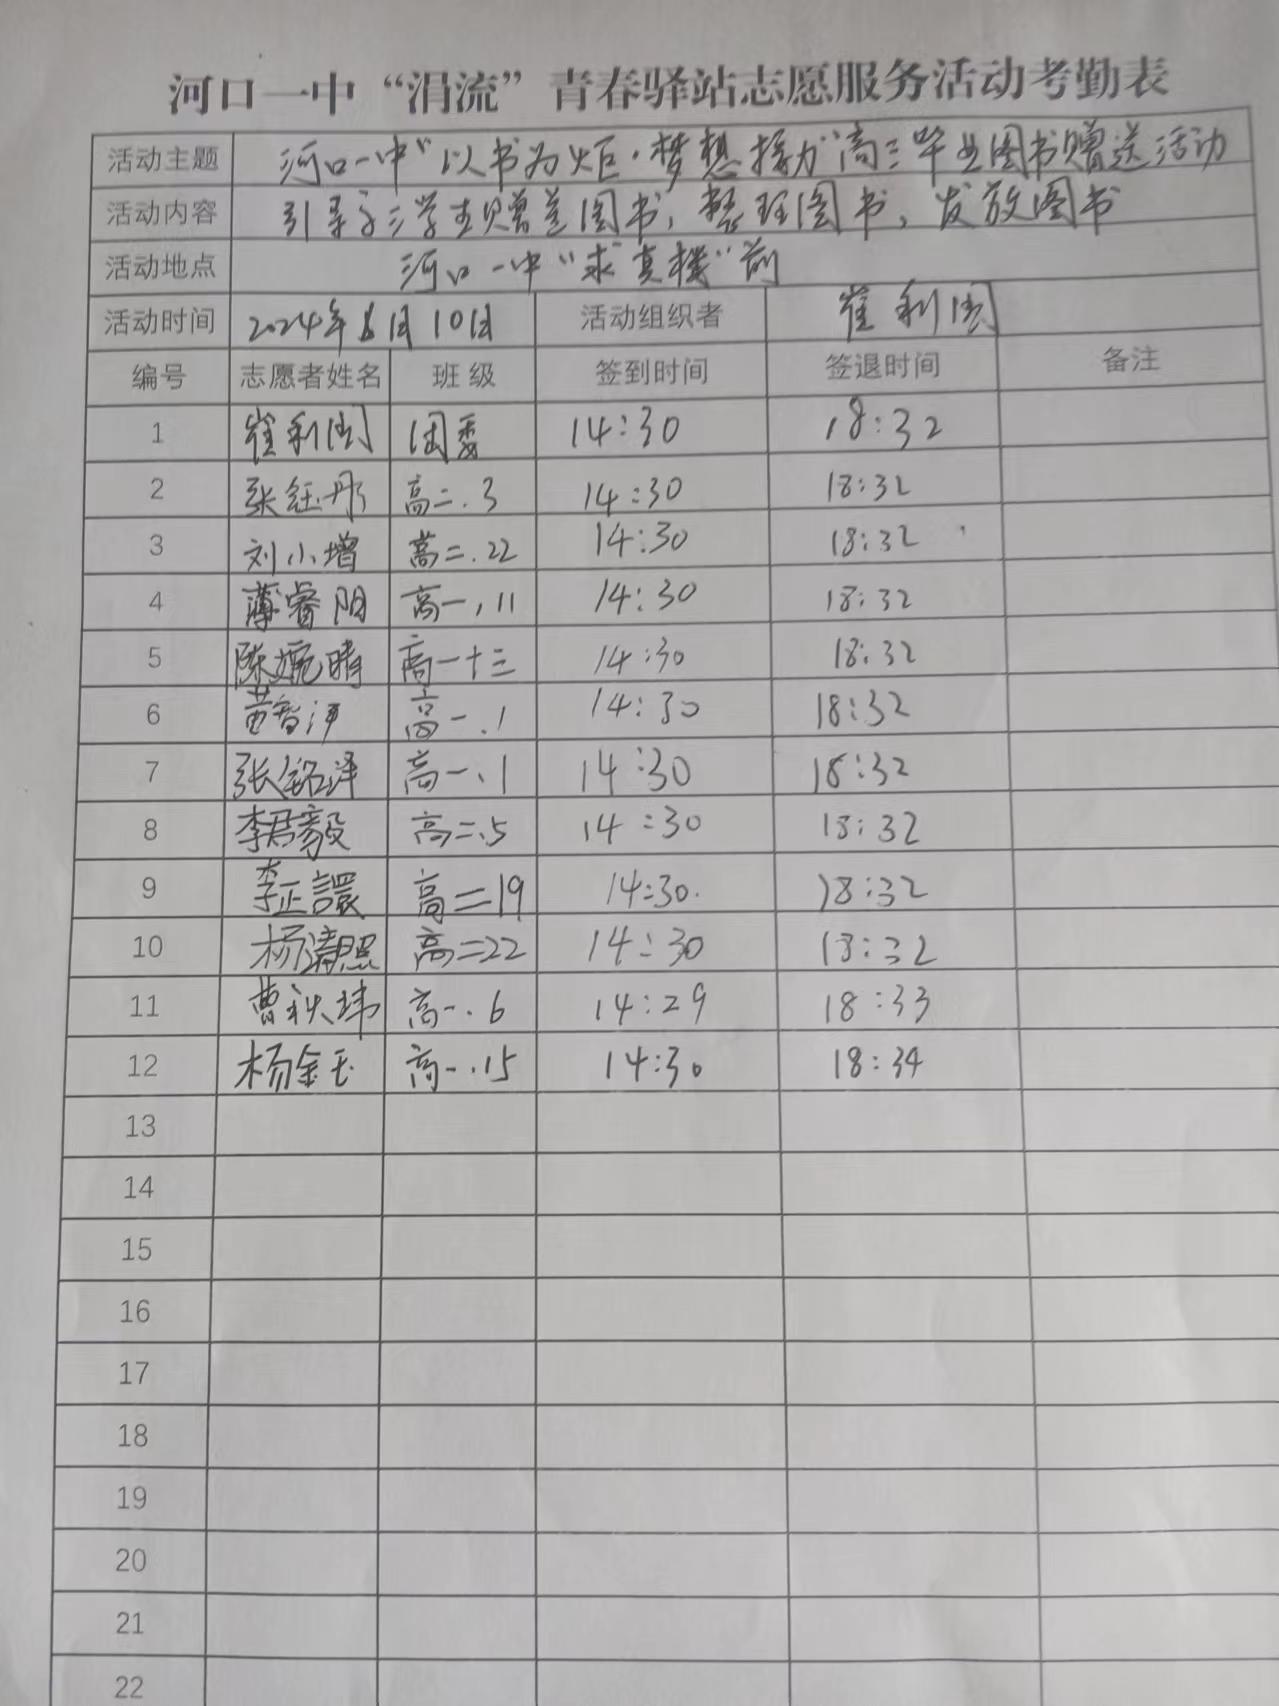 河口一中“涓流”青春驿站志愿服务活动考勤表
活动主题 河口一中“以书为炬·梦想接力”高三毕业图书赠送活动
活动内容 引导高三学生赠送图书，整理图书，发放图书
活动地点 河口一中“求真楼”前
活动时间 2024年6月10日 活动组织者 崔利国
编号 志愿者姓名 班级 签到时间 签退时间 备注
1 崔利国 团委 14:30 18:32
2 张钰彤 高二.3 14:30 18:32
3 刘小增 高二.22 14:30 18:32
4 薄睿阳 高一，11 14:30 18:32
5 陈婉晴 高一十三 14:30 18:32
6 黄智 高一.1 14:30 18:32
7 张铭泽 高一、1 14:30 18:32
8 李君毅 高二.5 14:30 18:32
9 李正譞 高二19 14:30. 18:32
10 杨清照 高二22 14:30 18:32
11 曹秋玮 高一.6 14:29 18:33
12 杨金玉 高一.15 14:30 18:34
13
14
15
16
17
18
19
20
21
22